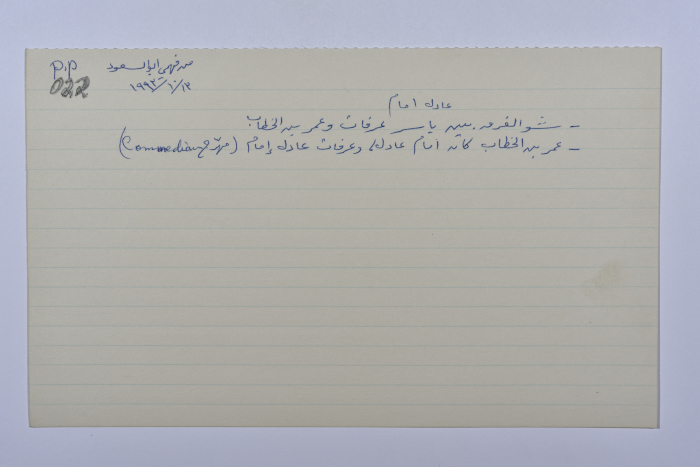 P.P
022
من فهمي ابو السعود
١٩٩٣/١٠/١٣
عادل امام
- شو الفرق بين ياسر عرفات وعمر بن الخطاب
- عمر بن الخطاب كان امام عادل، وعرفات عادل إمام (مهرّج Commedian)